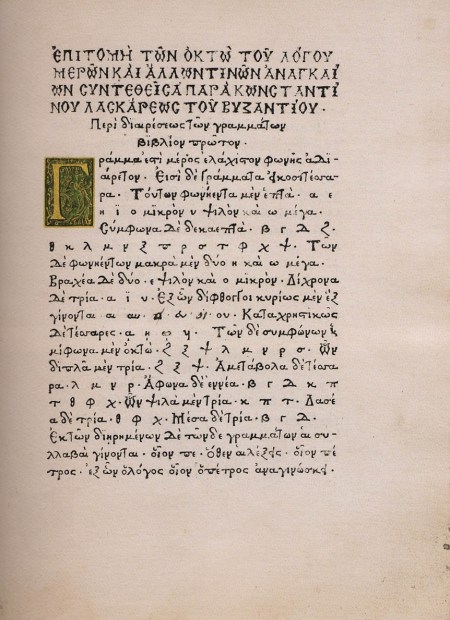 ἘΠΙΤΟΜῊ ΤΩ͂Ν ὈΚΤῺ ΤΟΥ͂ ΛΌΓΟΥ
ΜΕΡΩ͂Ν ΚΑῚ ἌΛΛΩΝ ΤΙΝΩ͂Ν ἈΝΑΓΚΑΊ
ΩΝ ΣΥΝΤΕΘΕῖΣΑ ΠΑΡᾺ ΚΩΝΣΤΑΝΤΊ
ΝΟΥ ΛΑΣΚΆΡΕΩΣ ΤΟΥ͂ ΒΥΖΑΝΤΊΟΥ.
Περὶ διαιρέσεως τῶν γραμμάτων
Βιβλίον πρῶτον.
Γράμμα ἐστὶ μέρος ἐλάχιστον φωνῆς ἀδι-
αίρετον. Εἰσὶ δὲ γράμματα εἰκοσιτέσσα
ρα. Τούτων φωνήεντα μὲν ἑπτά. α ε
η ι ο μικρὸν υ ψιλὸν καὶ ω μέγα.
Σύμφωνα δὲ δεκαεπτά. β γ δ ζ.
θ κ λ μ ν ξ π ρ σ τ φ χ ψ. Τῶν
δὲ φωνηέντων μακρὰ μὲν δύο η καὶ ω μέγα.
Βραχέα δὲ δύο. ε ψιλὸν καὶ ο μικρόν. Δίχρονα
δὲ τρία. α ι υ. Ἐξ ὧν δίφθογγοι κυρίως μὲν ἓξ
γίνονται. αι αυ. ει ευ οι. ου. Καταχρηστικῶς
δὲ τέσσαρες. ᾳ ῃ ῳ υι. Τῶν δὲ συμφώνων ἡ
μίφωνα μὲν ὀκτώ. ζ ξ ψ λ μ ν ρ σ. ὧν
διπλᾶ μὲν τρία. ζ ξ ψ. Ἀμετάβολα δὲ τέσσα
ρα. λ μ ν ρ. Ἄφωνα δὲ ἐννέα. β γ δ κ π
τ θ φ χ. ὧν ψιλὰ μὲν τρία. κ π τ. Δασέ
α δὲ τρία. θ φ χ. Μέσα δὲ τρία. β γ δ.
Ἐκ τῶν διῃρημένων δὲ τῶνδε γραμμάτων αἱ συ-
λλαβαὶ γίνονται. οἷον πε. ὅθεν αἱ λέξεις. οἷον πέ
τρος. ἐξ ὧν ὁ λόγος οἷον ὁ πέτρος ἀναγινώσκει.